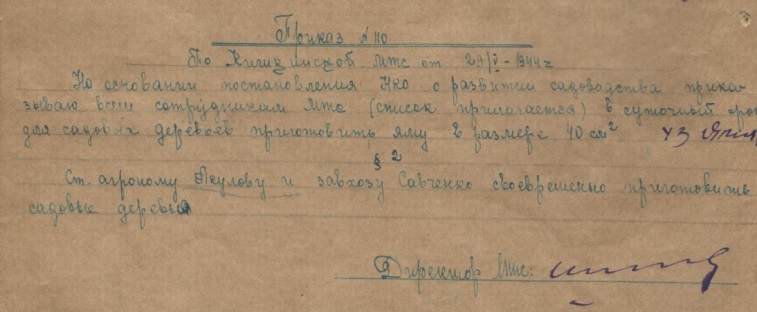 Приказ №110
По Кигинской мтс от 29/V-1944г
На основании постановления НКО о развитии садоводства прика
зываю всем сотрудникам мтс (список прилагается) в суточный срок
для садовых деревьев приготовить яму в размере 40 см²
§ 2
Ст. агроному Акулову и завхозу Савченко своевременно приготовить
садовые деревья
Директор мтс: